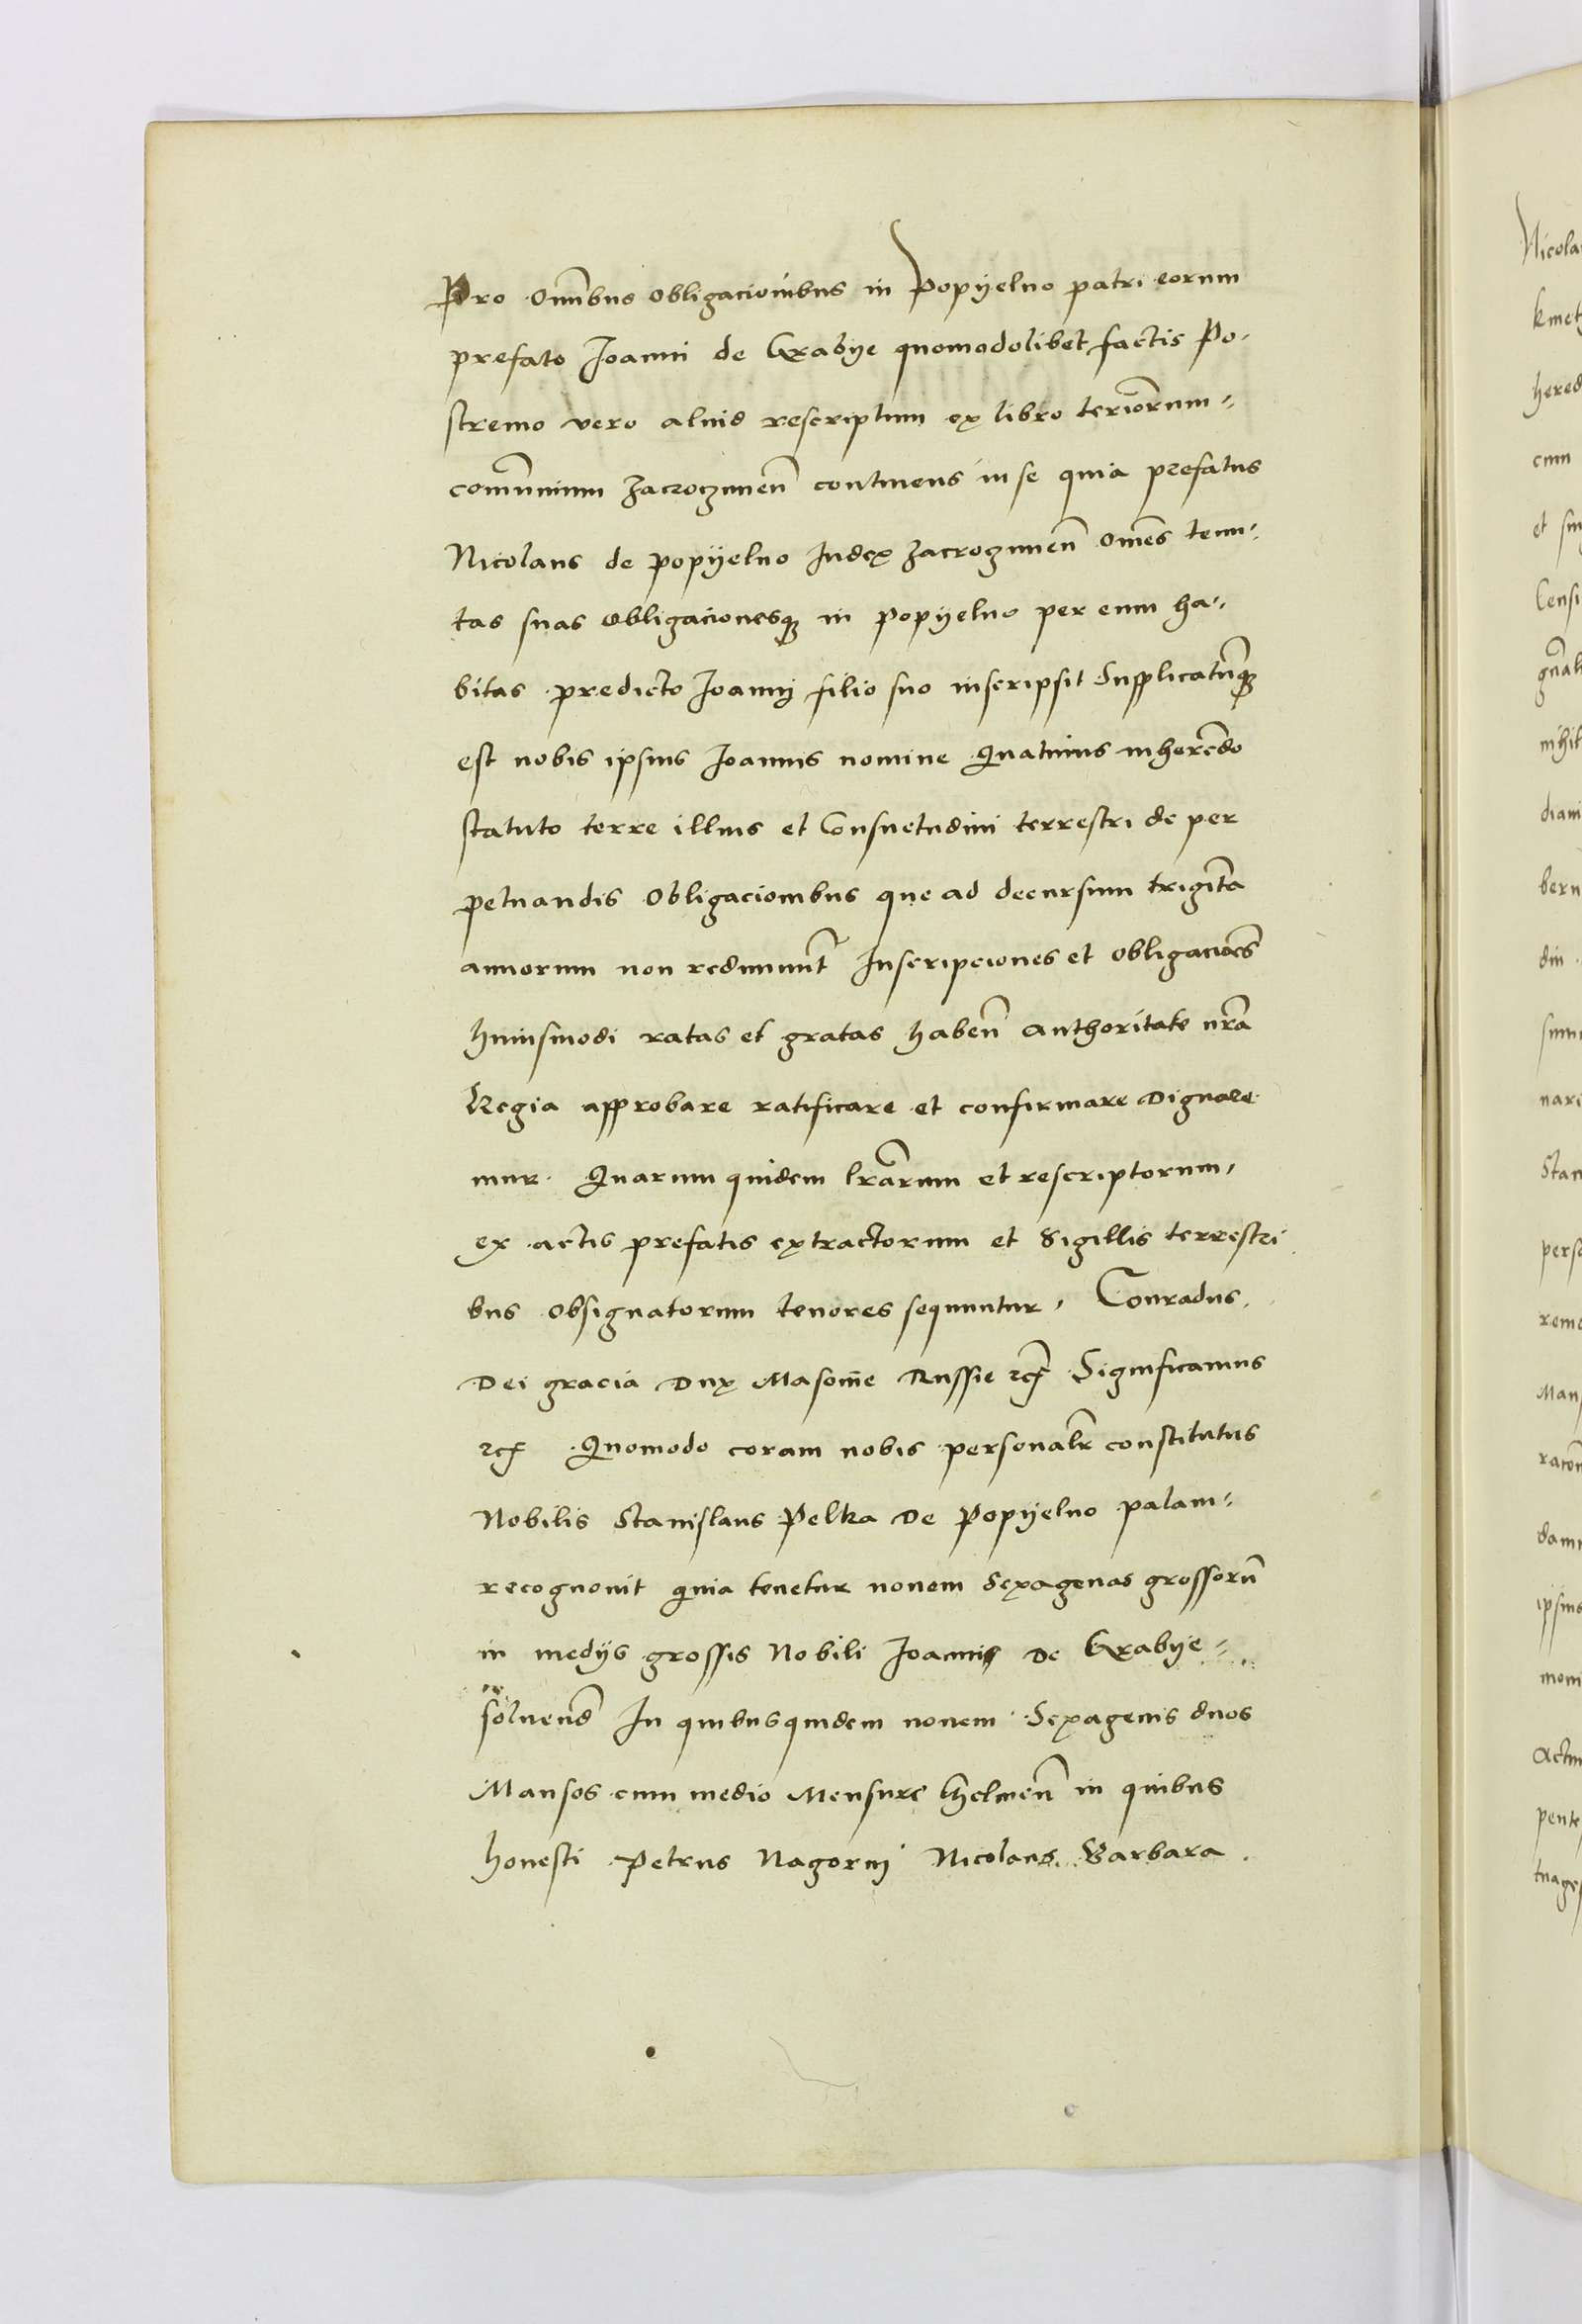 Pro Omnibus obligacionibus in Popyelno patri eorum
prefato Joanni de Grabye quomodolibet factis Po-
stremo vero aliud rescriptum ex libro terrorum
comunium Zacroczimen continens in se quia prefatus
Nicolaus de popyelno Iudex Zacroczimen Omes tenu-
tas suas obligacionesq in popyelno per eum ha-
bitas predicto Joanni filio suo inscripsit Supplicatuq
est nobis ipsius Joannis nomine Quatinus inherendo
statuto terre illius et Consuetudini terrestri de per
petuandis obligacionibus que ad decursum triginta
annorum non redimunt Inscripciones et obligacioes
huiusmodi ratas et gratas haben authoritate nra
Regia approbare ratificare et confirmare Dignare
mur. Quarum quidem lrarum et rescriptorum,
ex actis prefatis extractorum et Sigillis terrestri
bus obsignatorum tenores sequuntur, Conradus.
Dei gracia Dux Masovie Russie etc Significamus
etc Quomodo coram nobis personalr constitutus
Nobilis Stanislaus Pelka de Popyelno palam
recognovit quia tenetur novem Sexagenas grossoru
in medys grossis Nobili Joanni de Grabye
solvend In quibusquidem novem Sexagenis duos
Mansos cum medio Mensure Chelmen in quibus
honesti Petrus Nagorny Nicolaus Barbara
Nicola
kmet
hered
cum
et sin
Censi
gnal
nihil
diani
bern
din
nari
Stan
perso
remo
Man
racon
dam
ipsius
moni
Actu
pente
tuages